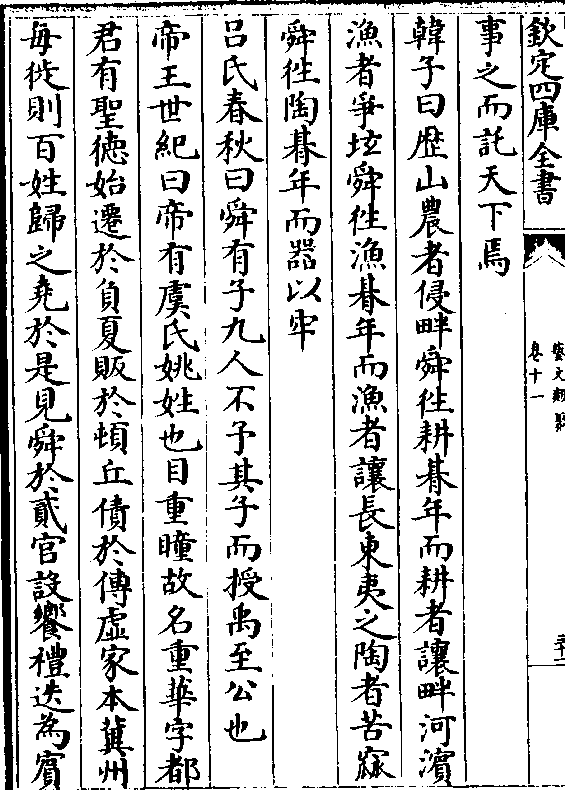 欽定四庫全書
藝文類聚
卷十一
二十二
事之而託天下焉
韓子曰歴山農者侵畔舜徃耕朞年而耕者讓畔河濱
漁者爭坻舜徃漁朞年而漁者讓長東夷之陶者苦窳
舜徃陶朞年而器以牢
吕氏春秋曰舜有子九人不予其子而授禹至公也
帝王世紀曰帝有虞氏姚姓也目重瞳故名重華字都
君有聖德始遷於負夏販於頓丘債於傅虚家本冀州
毎徙則百姓歸之堯於是見舜於貳官設饗禮迭為賓